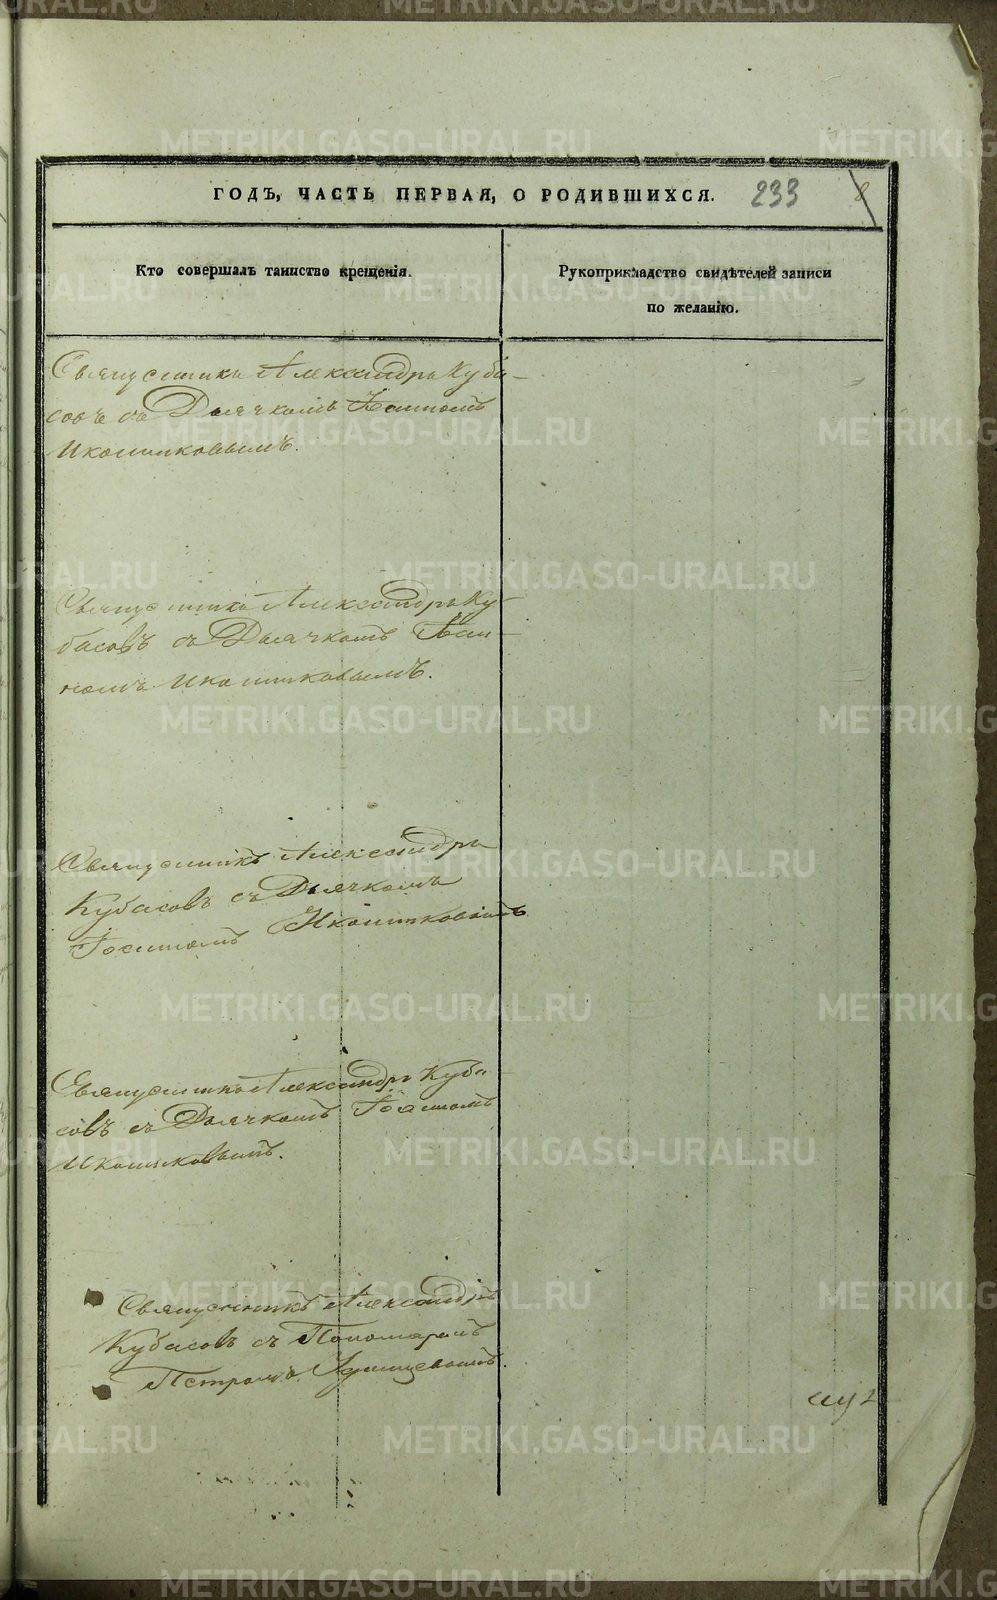 ГОДЪ, ЧАСТЬ ПЕРВАЯ, О РОДИВШИХСЯ. 233 8
Кто совершалъ таинство крещенія.
Рукоприкладство свидѣтелей записи
по желанію.
Священникъ Александръ Куба-
совъ съ Дьячкомъ
Иконниковымъ.
Священникъ Александръ Ку-
басовъ съ Дьячкомъ
Иконниковымъ.
Священникъ Александръ
Кубасовъ съ Дьячкомъ
Иконниковымъ
Священникъ Александръ Куба
совъ съ Дьячкомъ
Иконниковымъ.
Священникъ Александръ
Кубасовъ съ Пономаремъ
Петромъ
METRIKI.GASO-URAL.RU